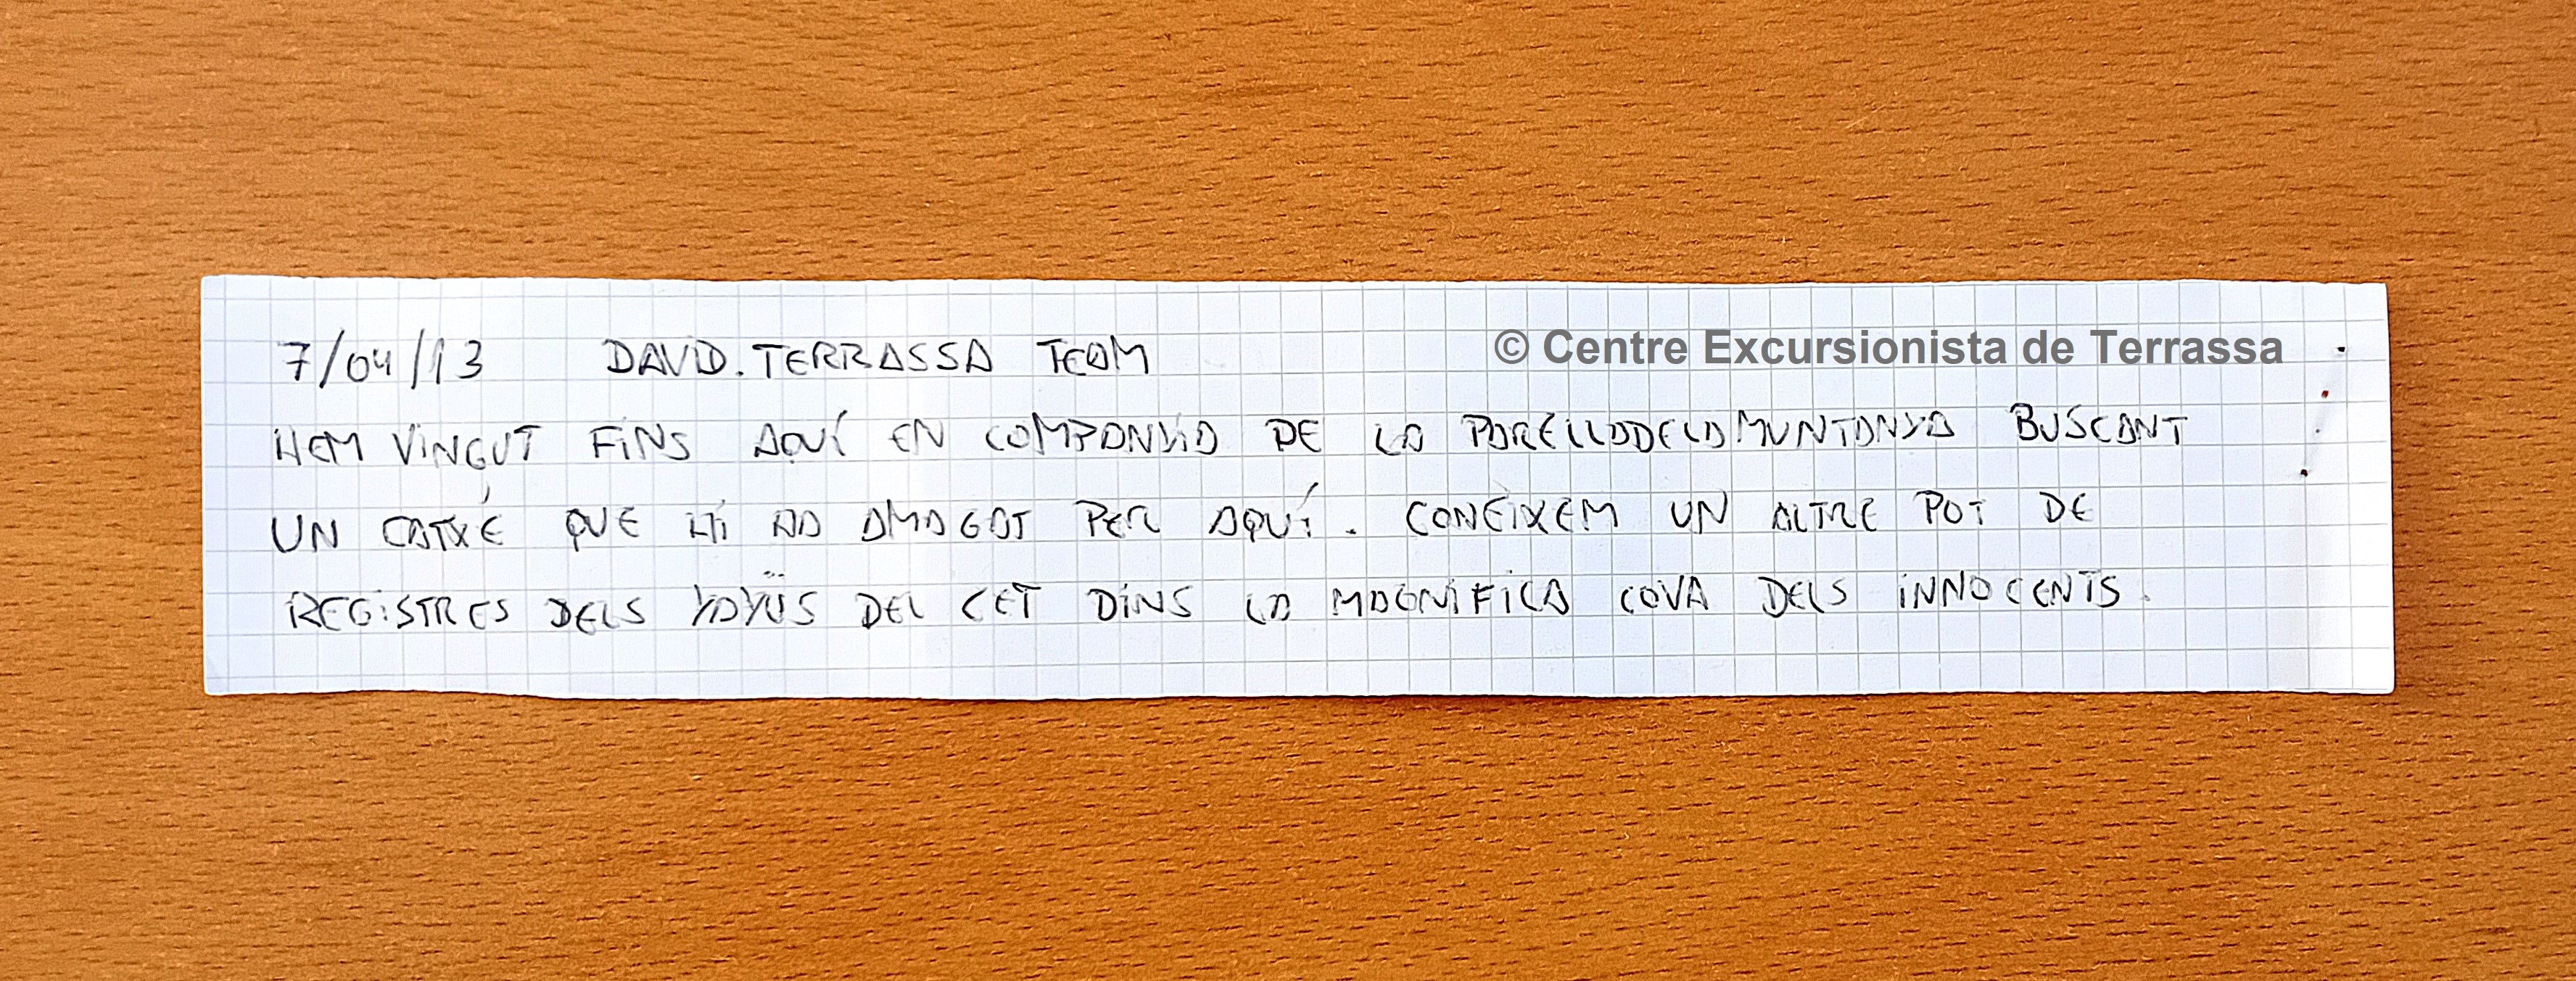 7/04/13 DAVID.TERRASSA TEAM
© Centre Excursionista de Terrassa
HEM VINGUT FINS AQUÍ EN COMPANYIA DE LA PARELLADELAMUNTANYA BUSCANT
UN CATXÉ QUE HI HA AMAGAT PER AQUÍ. CONEIXEM UN ALTRE POT DE
REGISTRES DELS YAYÜS DEL CET DINS LA MAGNIFICA COVA DELS INNOCENTS.